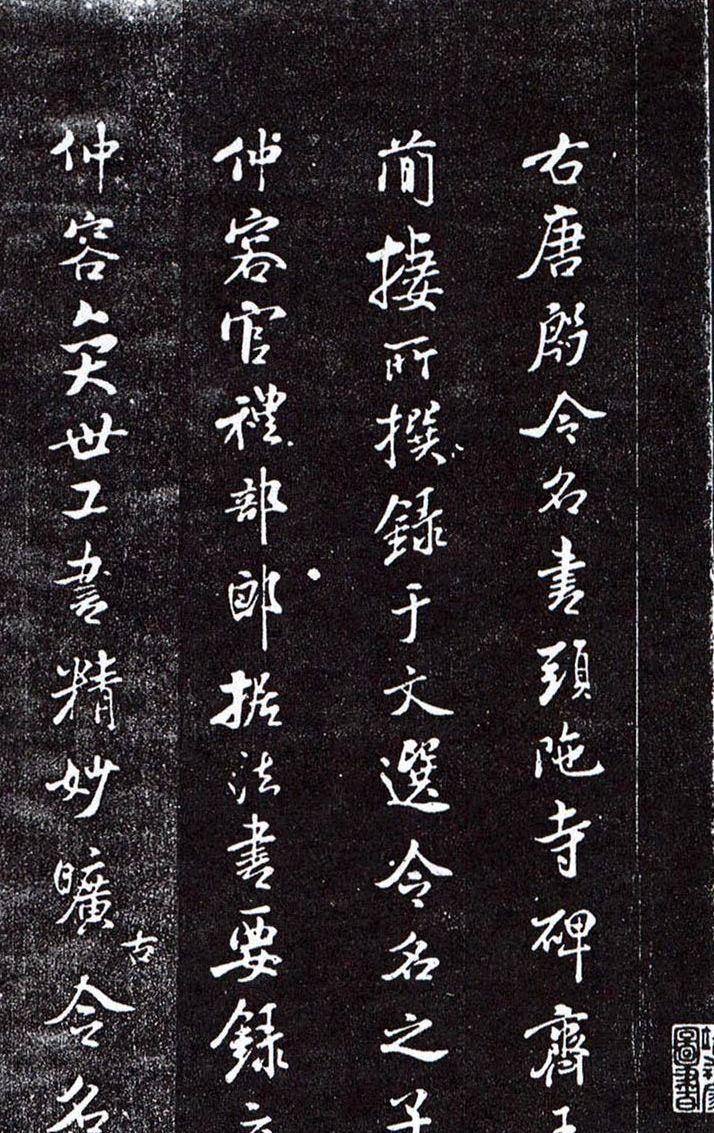 右唐殷令名書頭陁寺碑齊王
簡捿所撰録于文選令名之子
仲容官禮部郎据法書要録云
仲容奕世工書精妙曠古令名
圖書